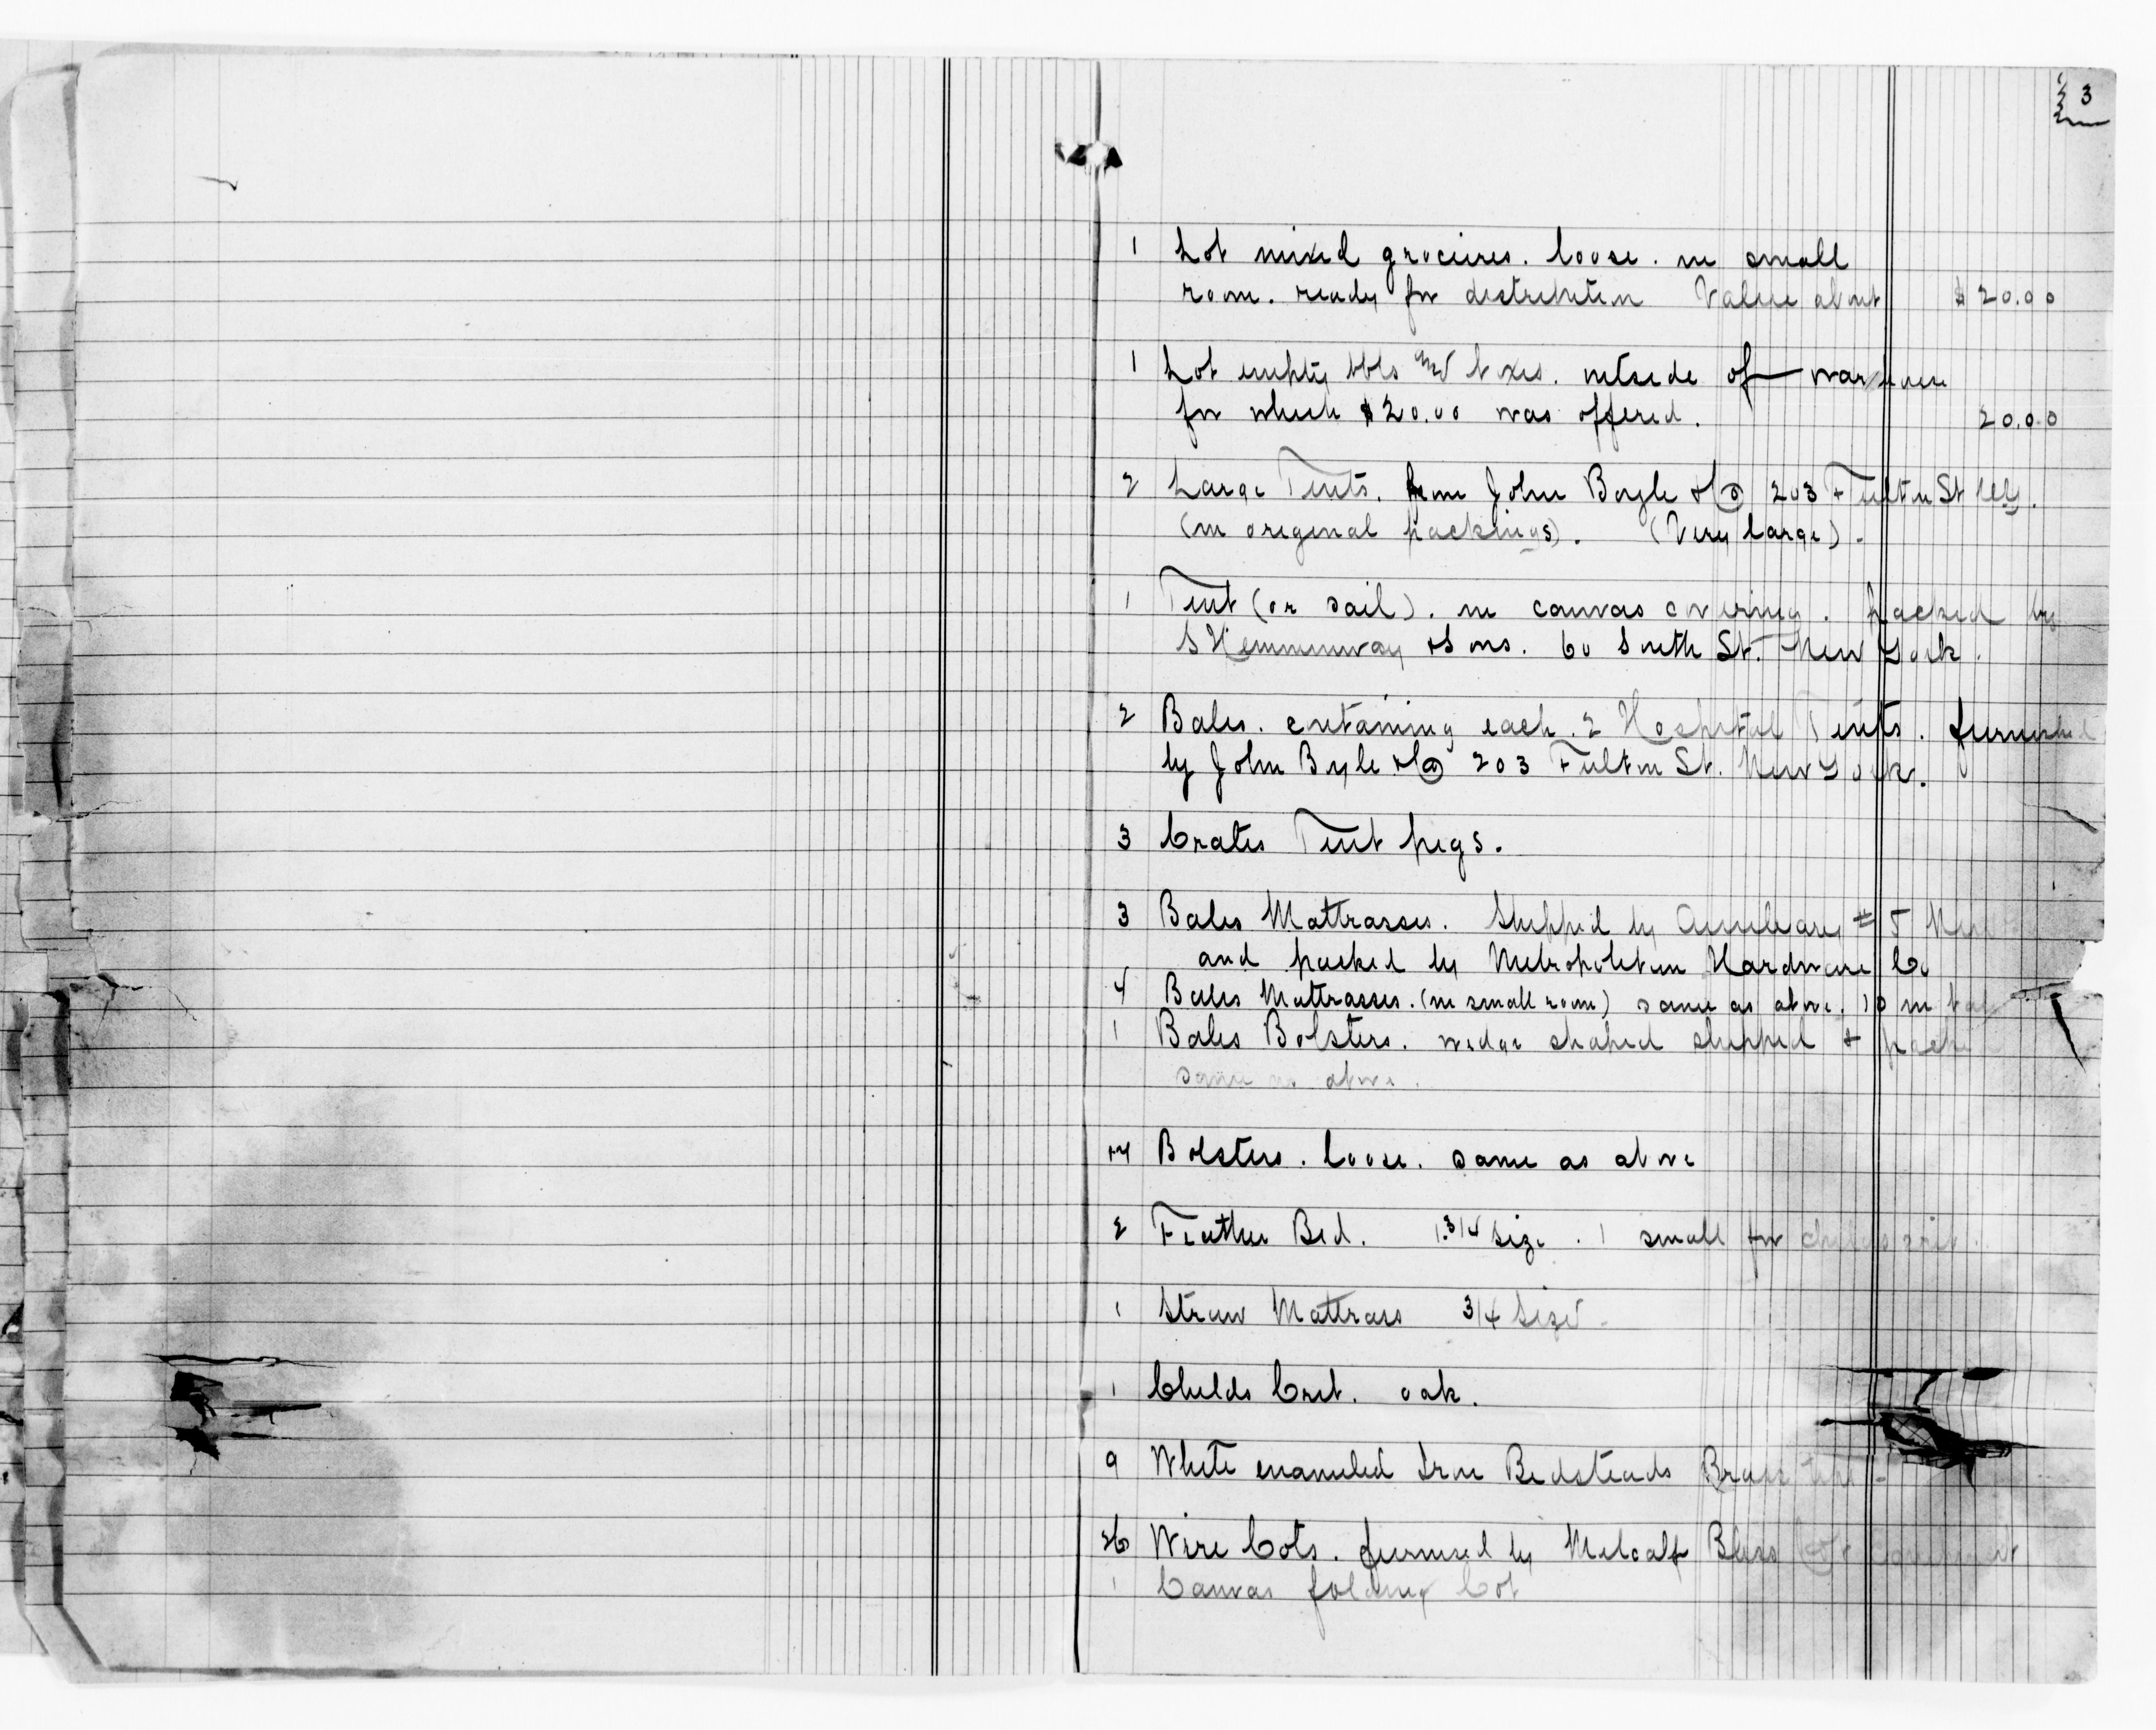 3
1 Lot mixed grocieres. loose. in small
room. ready for distribution Value about $20.00
1 Lot empty bbls and boxes. outside of warehouse
for which $20.00 was offered. 20.00
2 Large Tents. from John Boyle & Co 203 Fulton St NY.
(in original packings). (Very large).
1 Tent (or sail). in canvas covering. packed by
S Hemmenway & Sons. 60 South St. New York.
2 Bales. containing each. 2 Hospital Tents. furnished
by John Boyle & Co 203 Fulton St. New York.
3 Crates Tent pegs.
3 Bales Mattrasses. Shipped by Auxileary # 5
and packed by Metropolitan Hardware Co
4 Bales Mattrasses. (in small room) same as above. 10 in
1 Bales Bolsters. wedge shaped shipped &
same as above.
Bolsters. loose. same as above
2 Feather Bed. 1. 3/4 size. 1 small for childs crib.
1 Straw Mattrass 3/4 Size.
1 Childs Crib. oak.
9 White enameled Iron Bedsteads Brass
26 Wire Cots. furnised by Metcalf Bliss
1 Canvas folding Cot